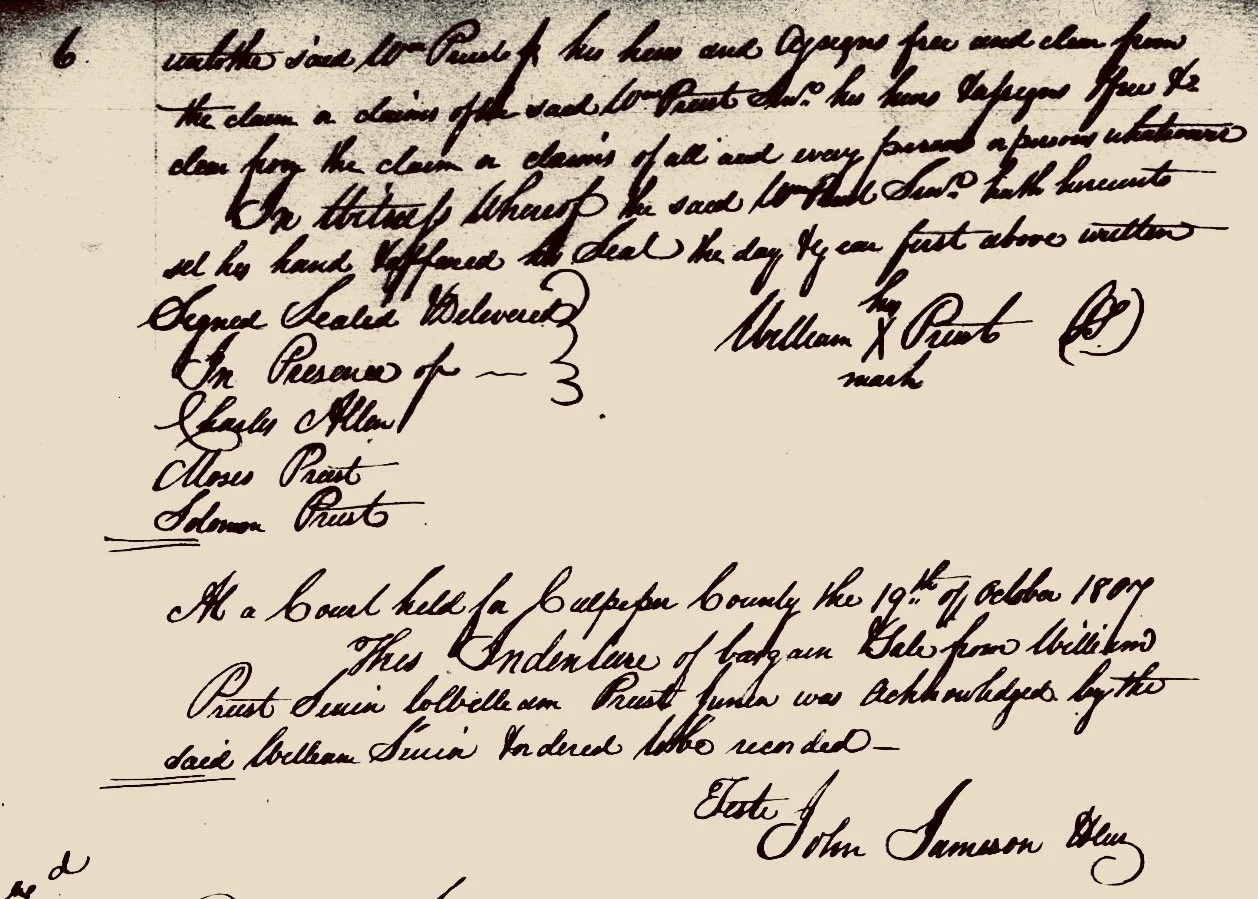 6.
unto the said Wm Priest Jr his heirs and Assigns free and clear from
the claim or claims of the said Wm Priest Senr. his heirs & assigns & free &
clear from the claim or claims of all and every person or persons whatsoever
In Witness Whereof the said Wm Priest Senr. hath hereunto
set his hand & affixed his Seal the day & year first above written
Signed Sealed & Delivered
In Presence of —
his
William X Priest (LS)
mark
Charles Allen
Moses Priest
Solomon Priest
At a Court held for Culpeper County the 19th. of October 1807
This Indenture of bargain & Sale from William
Priest Senior to William Priest Junior was acknowledged by the
said William Senior & ordered to be recorded —
Teste
John Jameson
d